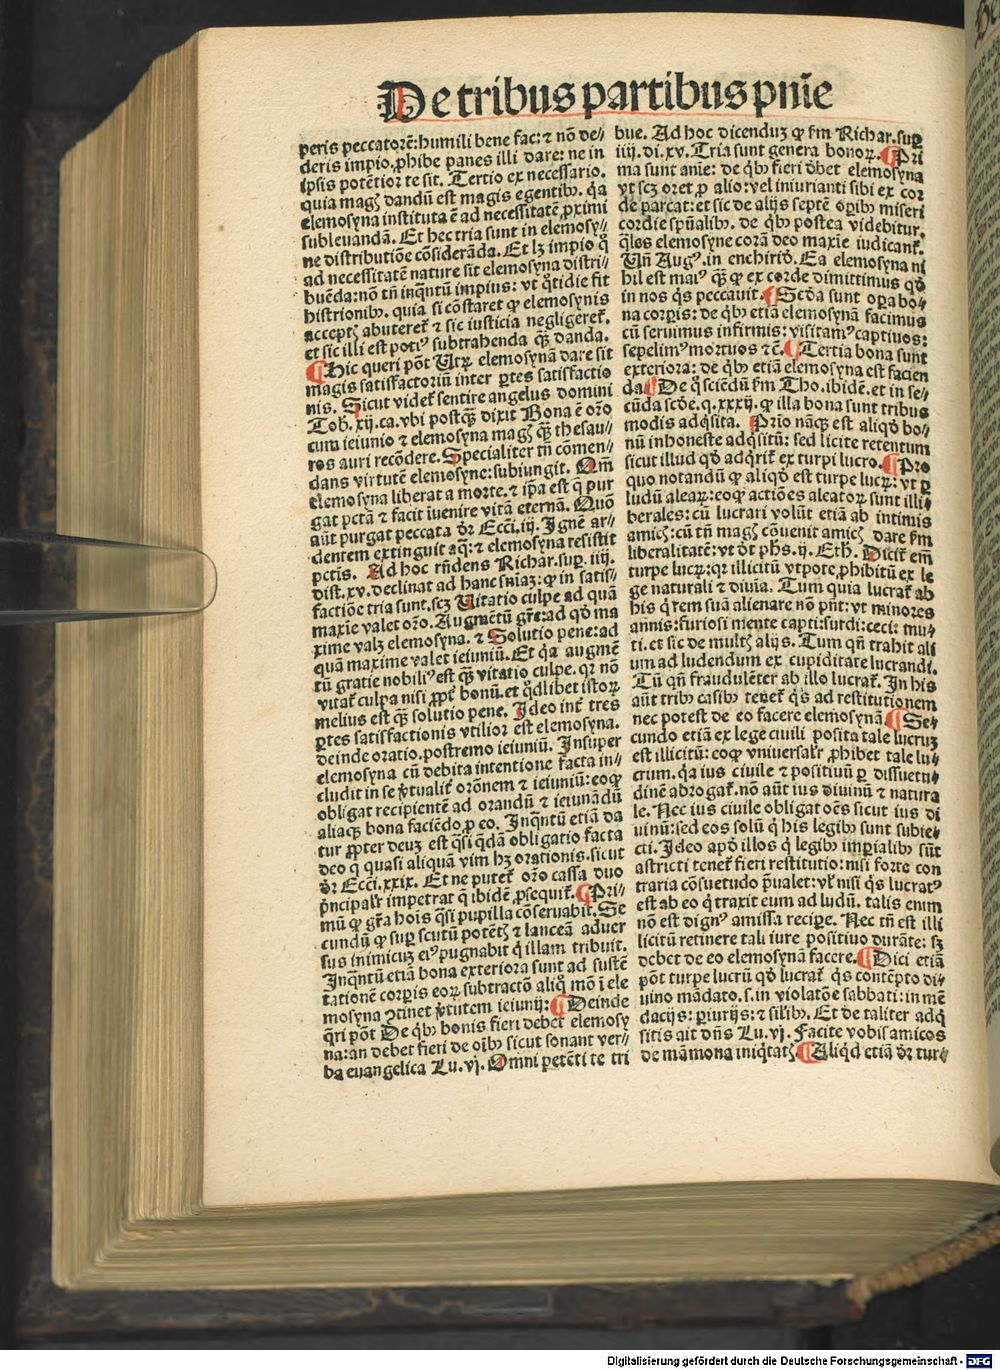 De tribus partibus pnīe
peris peccatorē: humili bene fac: ⁊ nō de⸗
deris impio. ꝓhibe panes illi dare: ne in
ipsis potētior te sit. Tertio ex necessario.
quia magꝭ dandū est magis egentibꝰ. qꝛa
elemosyna instituta ē ad necessitatē ꝓximi
subleuandā. Et hec tria sunt in elemosy⸗
ne distributiōe cōsiderāda. Et lꝫ impio
ad necessitatē nature sit elemosyna distri⸗
buēda: nō tn̄ inqntū impius: vt qtidie fit
histrionibꝰ. quia si cōstaret ꝙ elemosynis
acceptꝭ abuteret̄ ⁊ sic iusticia negligeret̄.
et sic illi est potiꝰ subtrahenda qꝫ danda.
¶ Hic queri pōt Utꝝ elemosynā dare sit
magis satisfactoriū inter ꝑtes satisfactio
nis. Sicut videt̄ sentire angelus domini
Tob. xij. ca. vbi postqꝫ dixit Bona ē orō
cum ieiunio ⁊ elemosyna magꝭ qꝫ thesau⸗
ros auri recōdere. Specialiter tn̄ cōmen⸗
dans virtutē elemosyne: subiungit. Qm̄
elemosyna liberat a morte. ⁊ ip̄a est q̄ pur
gat pctā ⁊ facit īuenire vitā eternā. Quō
aūt purgat peccata dr̄ Ecci. iij. Ignē ar⸗
dentem extinguit aq̄: ⁊ elemosyna resistit
pctīs. Ad hoc rn̄dens Richar. suꝑ. iiij.
dist. xv. declinat ad hanc sn̄iaꝫ: ꝙ in satis⸗
factiōe tria sunt. scꝫ Uitatio culpe ad quā
maxīe valet orō. Augmētū gr̄e: ad qd̄ ma
xime valꝫ elemosyna. ⁊ Solutio pene: ad
quā maxime valet ieiuniū. Et qꝛa augmē
tū gratie nobiliꝰ est qꝫ vitatio culpe. qꝛ nō
vitat̄ culpa nisi ꝓpt̄ bonū. et qdlibet istoꝝ
melius est qꝫ solutio pene. Ideo int̄ tres
ꝑtes satisfactionis vtilior est elemosyna.
deinde oratio. postremo ieiuniū. Insuper
elemosyna cū debita intentione facta in⸗
cludit in se ꝟtualit̄ orōnem ⁊ ieiuniū: eoꝙ
obligat recipientē ad orandū ⁊ ieiunādū
aliaqꝫ bona faciēdo ꝓ eo. Inqntū etiā da
tur ꝓpter deuꝫ est qsi qdā obligatio facta
deo q̄ quasi aliquā vim hꝫ orationis. sicut
dr̄ Ecci. xxix. Et ne putet̄ orō cassa duo
pncipalr̄ impetrat q̄ ibidē ꝓsequit̄. ¶ Pri⸗
mū ꝙ gr̄a hoīs qsi pupilla cōseruabit. Se
cundū ꝙ suꝑ scutū potētꝭ ⁊ lanceā aduer
sus inimicuꝫ eiꝰ pugnabit q̄ illam tribuit.
Inqntū etiā bona exteriora sunt ad sustē
tationē corꝑis eoꝝ subtractō aliq̊ mō ī ele
mosyna ꝯtinet ꝟtutem ieiunij: ¶ Deinde
qri pōt De qbꝰ bonis fieri debet elemosy
na: an debet fieri de oībꝰ sicut sonant ver⸗
ba euangelica Lu. vj. Omni petēti te tri
bue. Ad hoc dicenduꝫ ꝙ fm Richar. suꝑ
iiij. di. xv. Tria sunt genera bonoꝝ. ¶ Pri
ma sunt anīe: de qbꝰ fieri dꝫbet elemosyna
vt scꝫ oret ꝓ alio: vel iniurianti sibi ex cor
de parcat: et sic de alijs septē oꝑibꝰ miseri
cordie spūalibꝰ. de qbꝰ postea videbitur.
qles elemosyne corā deo maxīe iudicant̄.
Un̄ Augꝰ. in enchirid. Ea elemosyna ni
hil est maiꝰ qꝫ ꝙ ex corde dimittimus qd̄
in nos qs peccauit. ¶ Scda sunt oꝑa bo⸗
na corꝑis: de qbꝰ etiā elemosynā facimus
cū seruimus infirmis: visitamꝰ captiuos:
sepelimꝰ mortuos ⁊ē. ¶ Tertia bona sunt
exteriora: de qbꝰ etiā elemosyna est facien
da ¶ De q sciēdū fm Tho. ibidē. et in se⸗
cūda scde. q. xxxij. ꝙ illa bona sunt tribus
modis adqsita. Prīo nāqꝫ est aliqd bo⸗
nū inhoneste adqsitū: sed licite retentum
sicut illud qd̄ adqrit̄ ex turpi lucro. ¶ Pro
quo notandū ꝙ aliqd est turpe lucꝝ: vt ꝑ
ludū aleaꝝ: eoꝙ actiōes aleatoꝝ sunt illi⸗
berales: cū lucrari volūt etiā ab intimis
amicꝭ: cū tn̄ magꝭ cōuenit amicꝭ dare fm
liberalitatē: vt dt phs. ij. Eth. Dicit̄ em̄
turpe lucꝝ: qꝛ illicitū vtpote ꝓhibitū ex le
ge naturali ⁊ diuīa. Tum quia lucrat̄ ab
his q̄ rem suā alienare nō pn̄t: vt minores
annis: furiosi mente capti: surdi: ceci: mu⸗
ti. et sic de multꝭ alijs. Tum qn̄ trahit ali
um ad ludendum ex cupiditate lucrandi.
Tū qn̄ fraudulēter ab illo lucrat̄. In his
aūt tribꝰ casibꝰ tenet̄ qs ad restitutionem
nec potest de eo facere elemosynā. ¶ Se⸗
cundo etiā ex lege ciuili posita tale lucruꝫ
est illicitū: eoꝙ vniuersalr̄ ꝓhibet tale lu⸗
crum. qꝛa ius ciuile ⁊ positiuū ꝑ dissuetu⸗
dinē abrogat̄. nō aūt ius diuinū ⁊ natura
le. Nec ius ciuile obligat oēs sicut ius di
uinū: sed eos solū q̄ his legibꝰ sunt subie⸗
cti. Ideo apd̄ illos q̄ legibꝰ imꝑialibꝰ sūt
astricti tenet̄ fieri restitutio: nisi forte con
traria cōsuetudo p̄ualet: vl̄ nisi qs lucratꝰ
est ab eo q̄ traxit eum ad ludū. talis enim
nō est dignꝰ amissa reciꝑe. Nec tn̄ est illi
licitū retinere tali iure positiuo durāte: sꝫ
debet de eo elemosynā facere. ¶ Dici etiā
pōt turpe lucrū qd̄ lucrat̄ qs cōtēpto di⸗
uino mādato. s. in violatōe sabbati: in mē
dacijs: ꝑiurijs: ⁊ silibꝰ. Et de taliter adq
sitis ait dn̄s Lu. vj. Facite vobis amicos
de māmona iniqtatꝭ ¶ Aliqd etiā dr̄ tur⸗
Digitalisierung gefördert durch die Deutsche Forschungsgemeinschaft - DFG